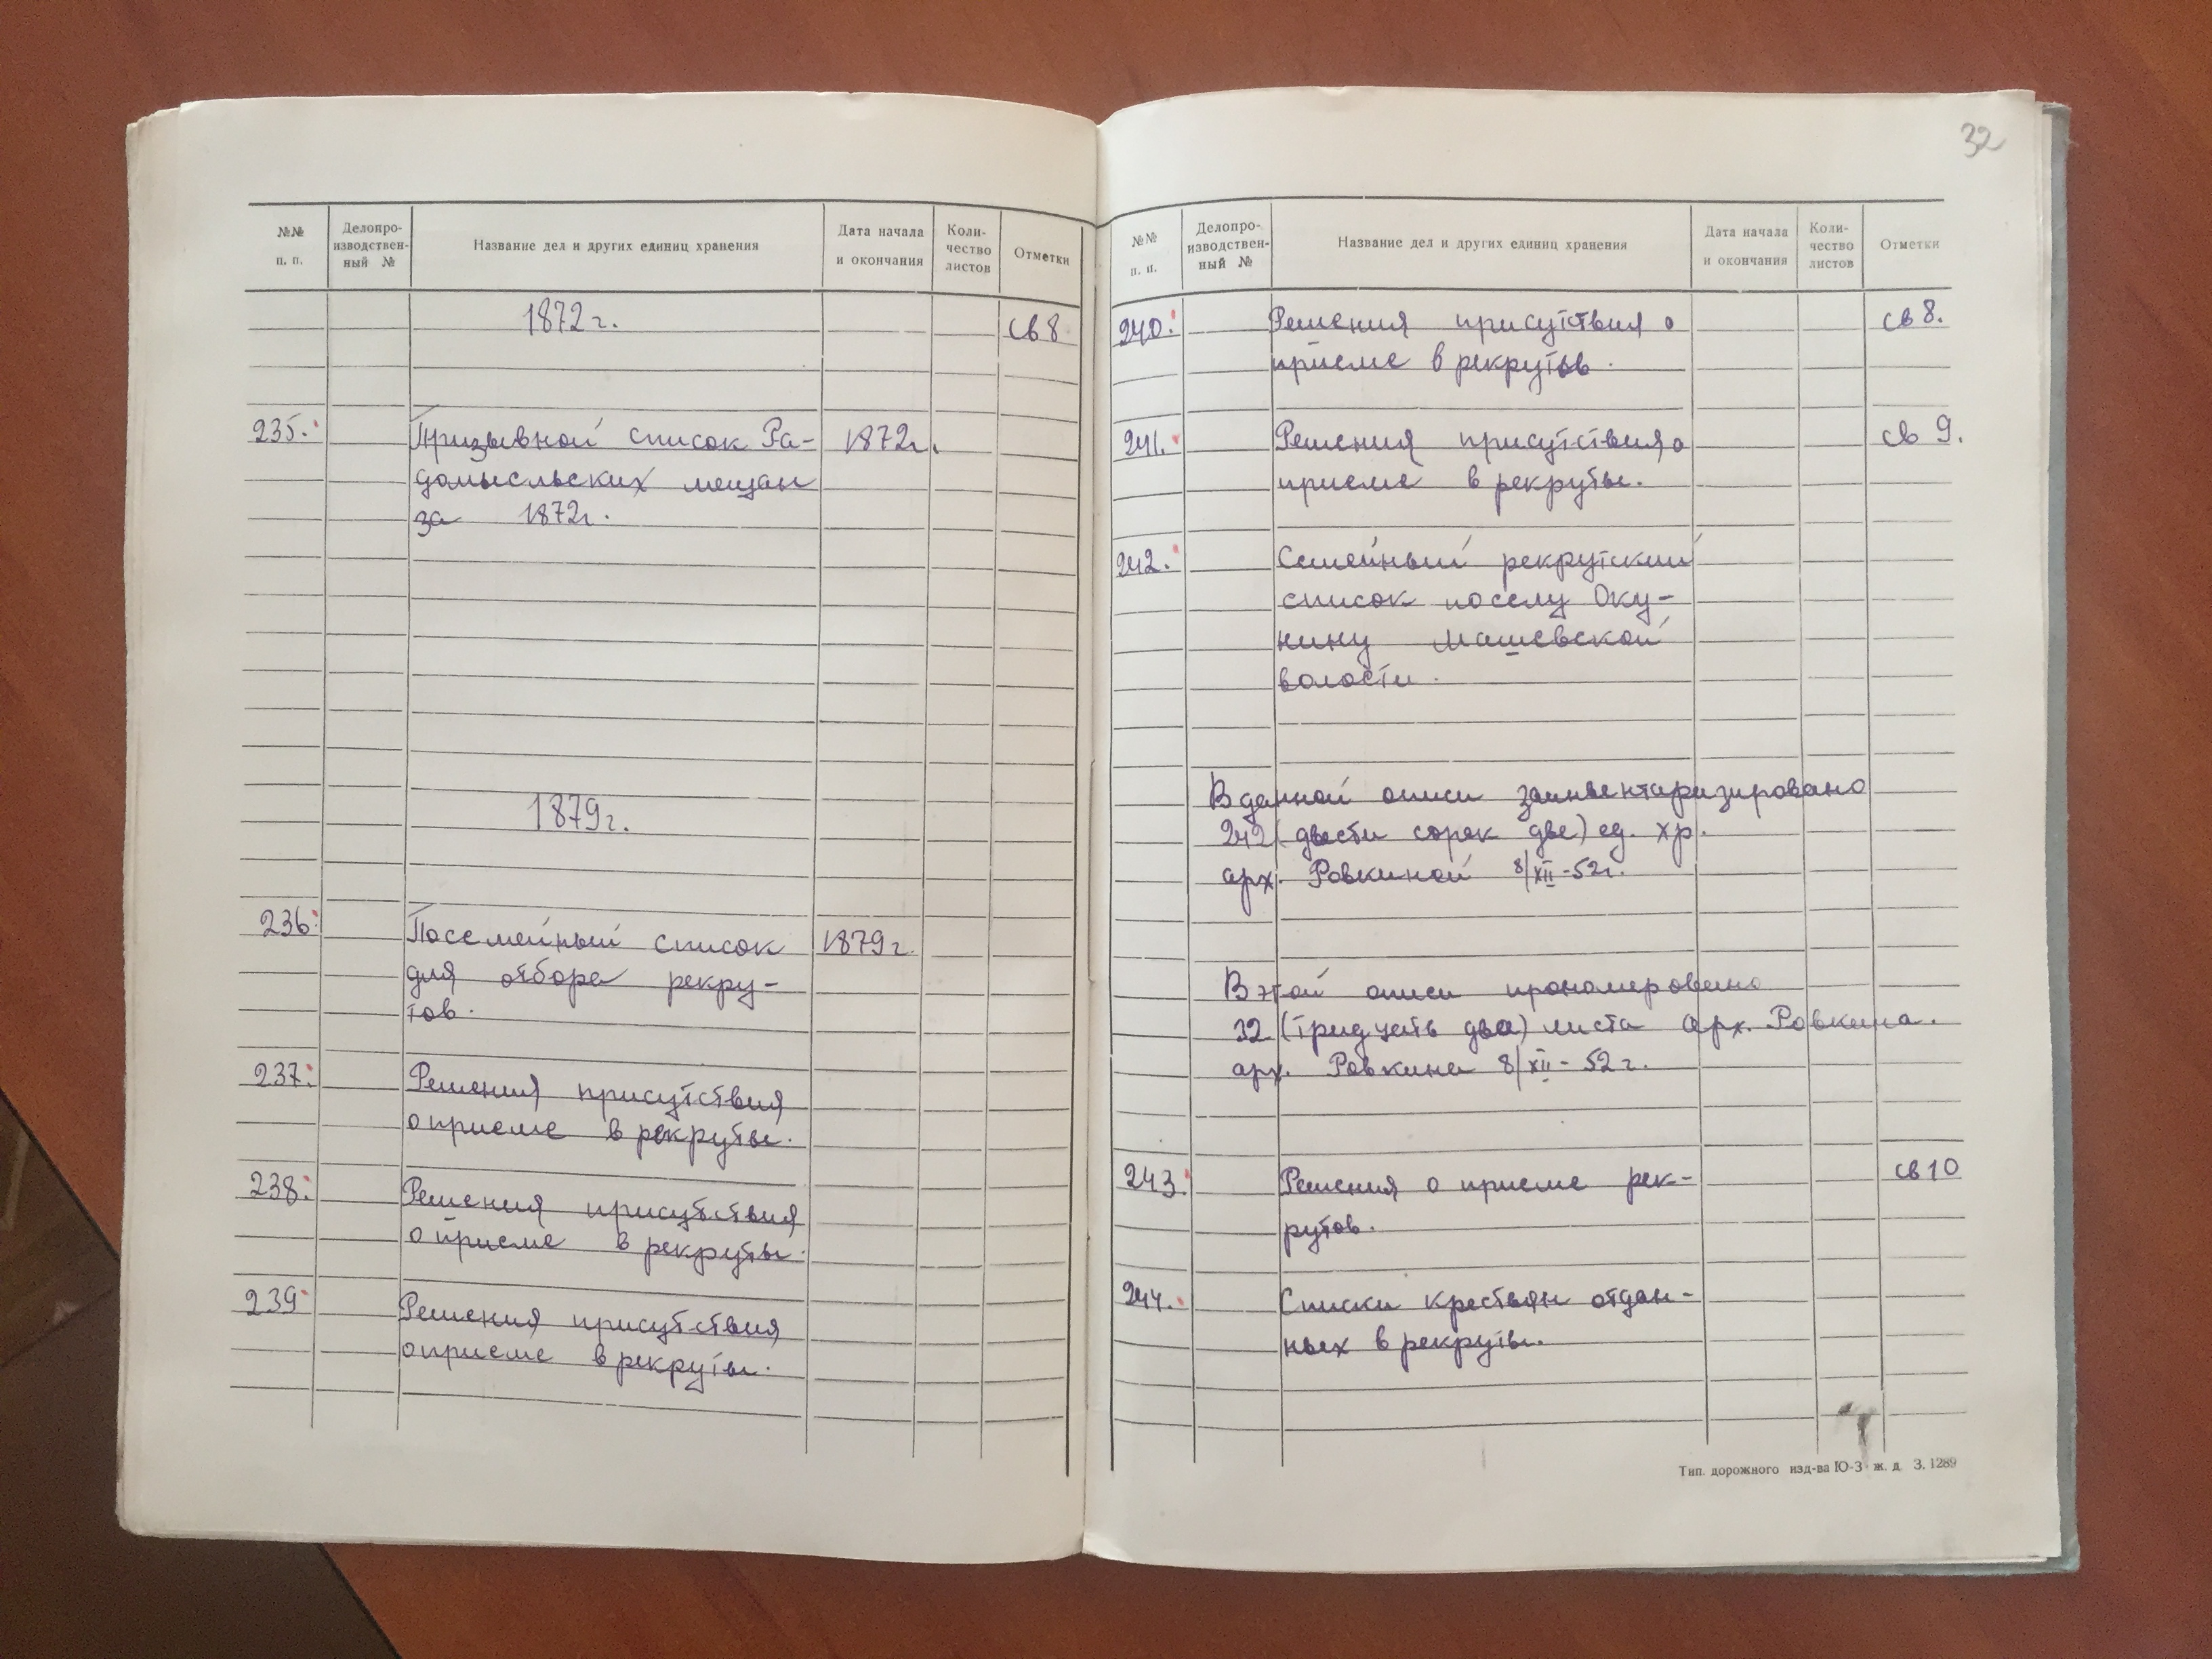 №№ п. п.
Делопро-
изводствен-
ный №
Название дел и других единиц хранения
Дата начала
и окончания
Коли-
чество
листов
Отметки
1872 г.
св 8
235. Призывной список Ра- 1872 г.
домысльских мещан
за 1872 г.
1879 г.
236. Посемейный список 1879 г.
для отбора рекру-
тов.
237. Решения присутствия
о приеме в рекруты.
238. Решения присутствия
о приеме в рекруты.
239 Решения присутствия
о приеме в рекруты.
32
№№ п. п.
Делопро-
изводствен-
ный №
Название дел и других единиц хранения
Дата начала
и окончания
Коли-
чество
листов
Отметки
240. Решения присутствия о св 8.
приеме в рекрутов.
241. Решения присутствия о св 9.
приеме в рекруты.
242. Семейный рекрутский
список по селу Оку-
нину Машевской
волости.
В данной описи заинвентаризировано
242 (двести сорок две) ед. хр.
арх. Ровкиной 8/XII-52г.
В этой описи прономеровано
32 (тридцать два) листа арх. Ровкина.
арх. Ровкина 8/XII-52 г.
243. Решения о приеме рек- св 10
рутов.
244. Списки крестьян отдан-
ных в рекруты.
Тип. дорожного изд-ва Ю-З ж. д. З. 1289